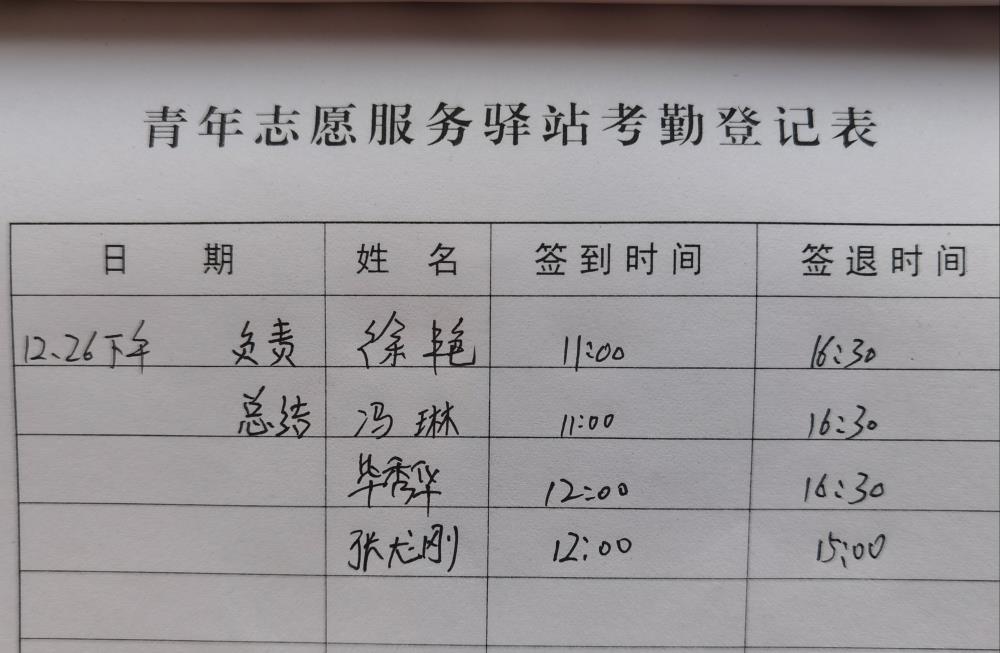 青年志愿服务驿站考勤登记表
日 期 姓 名 签到时间 签退时间
12.26下午 负责 徐艳 11:00 16:30
总结 冯琳 11:00 16:30
毕秀华 12:00 16:30
张龙刚 12:00 15:00